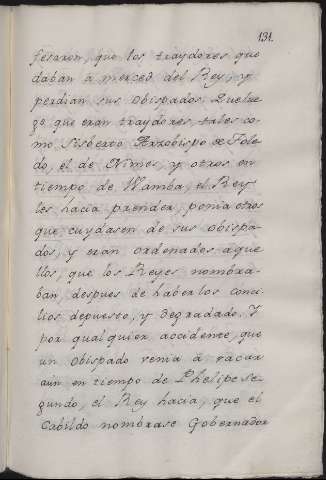 131.
fesaron, que los traydores que
daban à merced del Rey, y
perdian sus obispados. Luelue
go que eran traydores, tales co
mo Sisberto Arzobispo de Tole
do, el de Nimes, y otros en
tiempo de Wamba, el Rey
les hacia prender, ponia otros
que cuydasen de sus obispa
dos, y eran ordenados aque
llos, que los Reyes nombra
ban despues de haberlos conci
lios depuesto, y degradado. Y
por qualquier accidente, que
un obispado venia à vacar
aùn en tiempo de Phelipe se
gundo, el Rey hacia, que el
Cabildo nombrase Gobernador